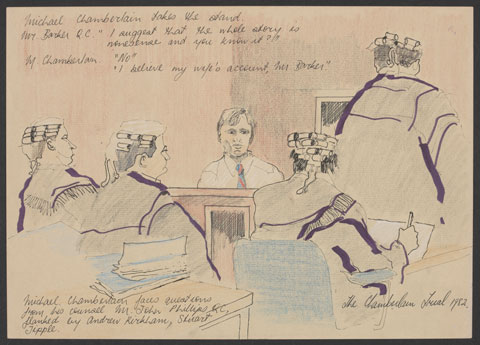 Michael Chamberlain takes the stand.
Mr. Barker Q.C. "I suggest that the whole story is
nonsense and you know it?!"
M. Chamberlain "No"
"I believe my wife's account, Mr Barker"
Michael Chamberlain faces questions
from his counsel Mr. John Phillips Q.C,
flanked by Andrew Kirkham, Stuart
Tipple.
The Chamberlain Trial 1982